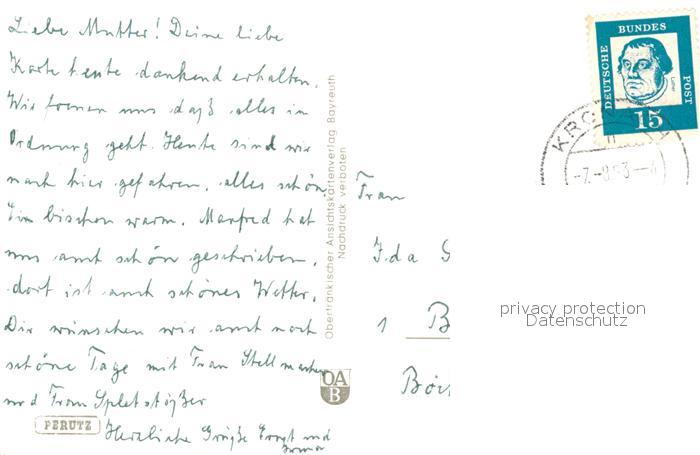 Liebe Mutter! Deine liebe
Karte heute dankend erhalten.
Wir freuen uns daß alles in
Ordnung geht. Heute sind wir
nach hier gefahren, alles schön.
Ein bischen warm. Manfred hat
uns auch schön geschrieben,
dort ist auch schönes Wetter.
Dir wünschen wir auch noch
schöne Tage mit Frau Stellmacher
und Frau Spletstößer
Herzliche Grüße Ernst und
Irma
PERUTZ
Oberfränkischer Ansichtskartenverlag Bayreuth
Nachdruck verboten
OA
B
DEUTSCHE
BUNDES
POST
Luther
15
KRON
-7.-8.63-
Frau
Ida
1 B
privacy protection
Datenschutz